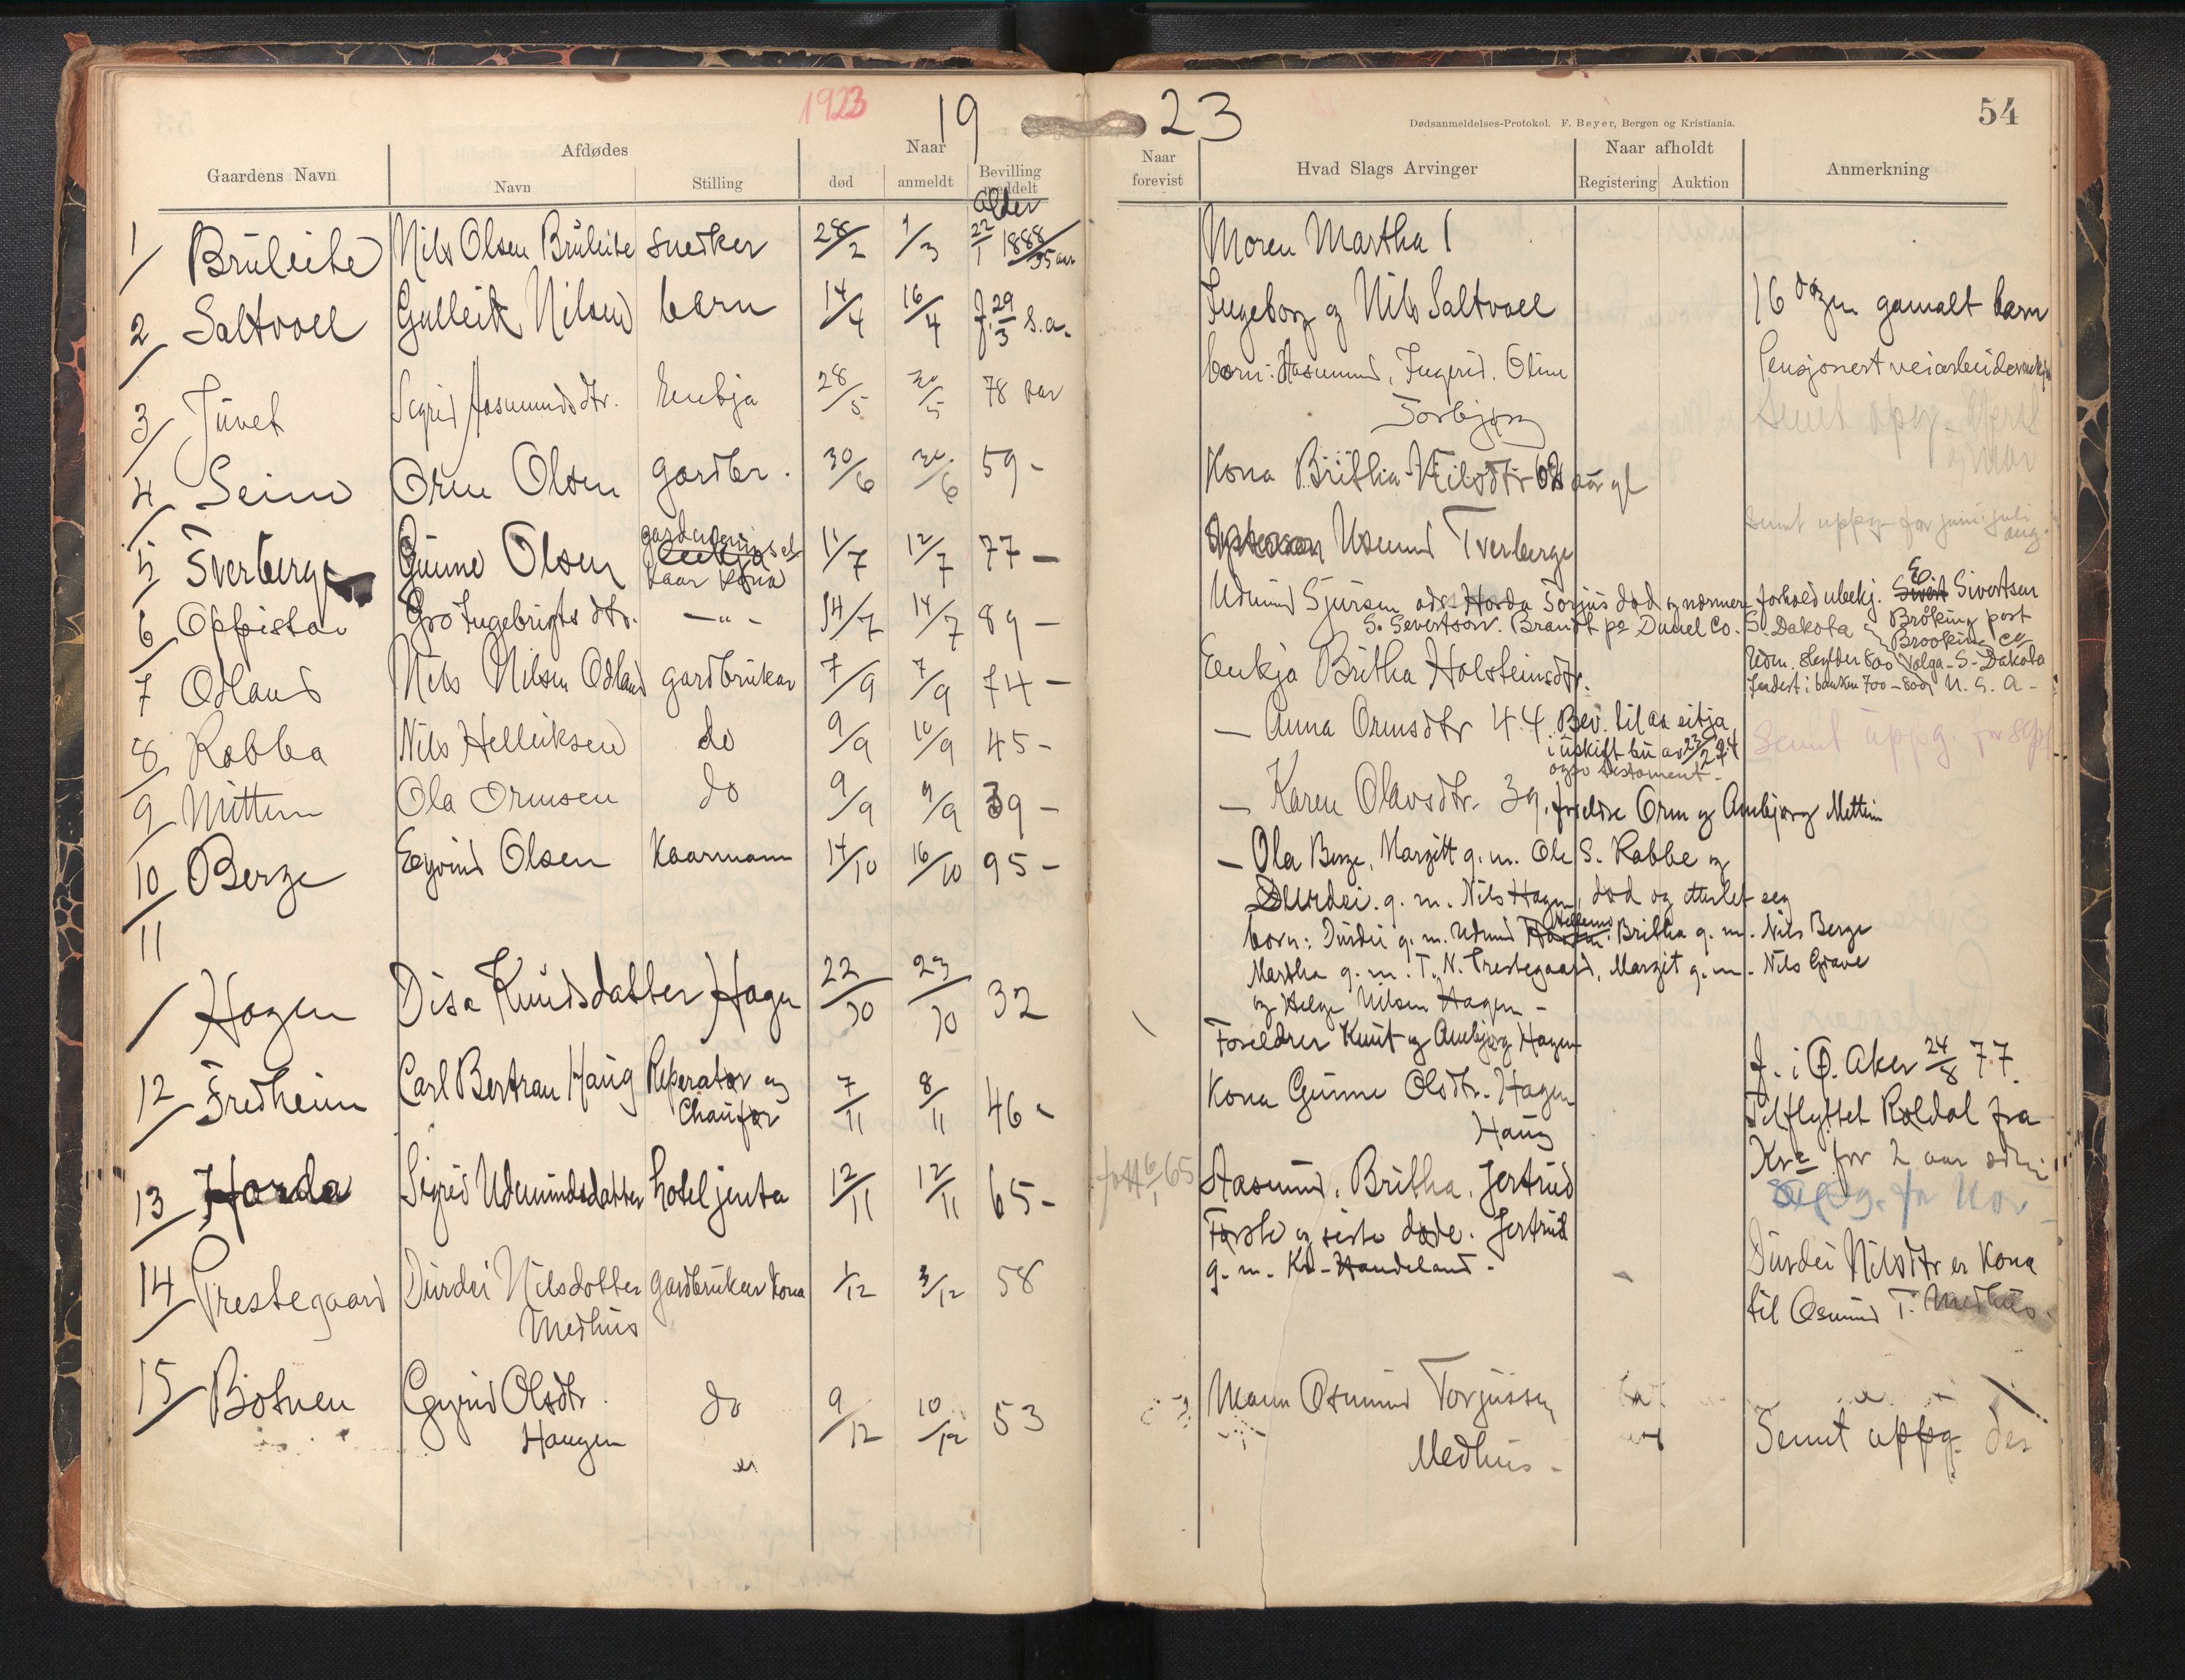 1923
19 23
54
Dødsanmeldelses-Protokol. F. Beyer, Bergen og Kristiania.
Gaardens Navn
Afdødes
Navn
Stilling
Naar
død
anmeldt
Bevilling meddelt
alder
Naar forevist
Hvad Slags Arvinger
Naar afholdt
Registering
Auktion
Anmerkning
1/ Brüleite Nils Olsen Brüleite snedker 28/2 1/3 22/1 1888/35 aar Moren Martha
2/ Saltvoll Gulleik Nilsen barn 14/4 16/4 f. 29/3 s.a. Ingeborg og Nils Saltvoll 16 dager gamalt barn
3/ Juvet Sigrid Aasmundsdtr. Enkja 28/5 30/5 78 aar born: Aasmund, Ingerid, Oline
Torbjørg
4/ Seim Orm Olsen gardbr. 30/6 30/6 59 - Kona Britha Nilsdtr 62 aar gl
Sennt uppg. for juni juli
aug.
5/ Tverberge Gunne Olsen
kaar kona 11/7 12/7 77 - Usmund Tverberge
6/ Oppistau Gro Ingebrigtsdtr. -"- 14/7 14/7 89 - Udmund Sjursen Horda Torjus død og nærmere forhold ubekj. Sivertsen
S. Severtson. Brandt po Duuel Co. S. Dakota
Bröking post
Brookin Co
Volga - S - Dakota
U. S. A -
7 Odland Nils Nilsen Odland gardbrukar 7/9 7/9 74 - Enkja Britha Holsteinsdtr.
8/ Rabba Nils Helleiksen do 9/9 10/9 45 - - Anna Ormsdtr 44 Bev. til aa sitja
i uskift bu av 23/2 24
ogso testament -
Sennt uppg. for sept
9/ Mittun Ola Ormsen do 9/9 9/9 39 - - Karen Olavsdtr. 39. foreldre Orm og Anbjørg Mettun
10/ Berge Eyvind Olsen Kaarmann 14/10 16/10 95 - - Ola Berge, Margitt g. m. Ole S. Rabbe og
Durdei. g. m. Nils Hagen, død og etterlet seg
born: Durdei g. m. Udmund Hellemo Britha g. m. Nils Berge
Martha g. m. T. N. Prestegaard, Margit g. m. Nils Grave
og Helge Nilsen Hagen -
11/ Hagen Disa Knudsdatter Hagen 22/10 23/10 32 Foreldrer Knut og Anbjørg Hagen
12/ Fredheim Carl Bertran Haug Reperatør og
Chaufør 7/11 8/11 46 - Kona Gunne Olsdtr. Hagen
Haug
f. i Ø. Aker 24/8 77.
Tilflyttet Røldal fra
Kr.a for 2 aar sidan
13/ Horda Sigrid Udmundsdatter hoteljenta 12/11 12/11 65 - født 6/1 65 Aasmund, Britha, Jertrud
Første og siste døde. Jertrud
g. m. Kr. Handeland.
Uppg. for Nov
14/ Prestegaard Durdei Nilsdotter
Medhus gardbrukar kona 1/12 3/12 58
Durdei Nilsdtr er kona
til Osmund T. Medhus.
15/ Botnen Gyrid Olsdtr.
Haugen do 9/12 10/12 53 Mann Osmund Torjussen
Medhus -
Sennt uppg. des